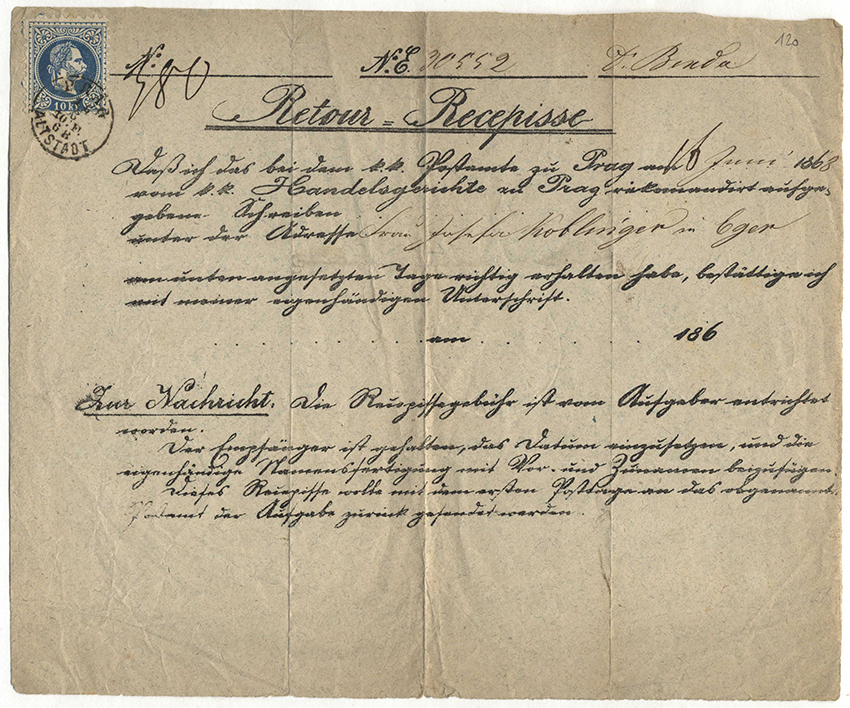 120
No. 580 N.E. 30552 Dr. Benda
10 kr
ALTSTADT
Retour = Recepisse
Daß ich das bei dem k.k. Postamte zu Prag am 16 Juni 1868
vom k.k. Handelsgerichte zu Prag rekomandirt aufge-
gebene Schreiben
unter der Adresse Frau Josefa Koblinger in Eger
am unten angesetzten Tage richtig erhalten habe, bestättige ich
mit meiner eigenhändigen Unterschrift.
. . . . . . . . am . . . . . . . 186
Zur Nachricht. Die Recepissegebühr ist vom Aufgeber entrichtet
worden.
Der Empfänger ist gehalten, das Datum einzusetzen, und die
eigenhändige Namensfertigung mit Vor- und Zunamen beizufügen.
Dieses Recepisse wolle mit dem ersten Posttage an das obgenannte
Postamt der Aufgabe zurück gesendet werden.